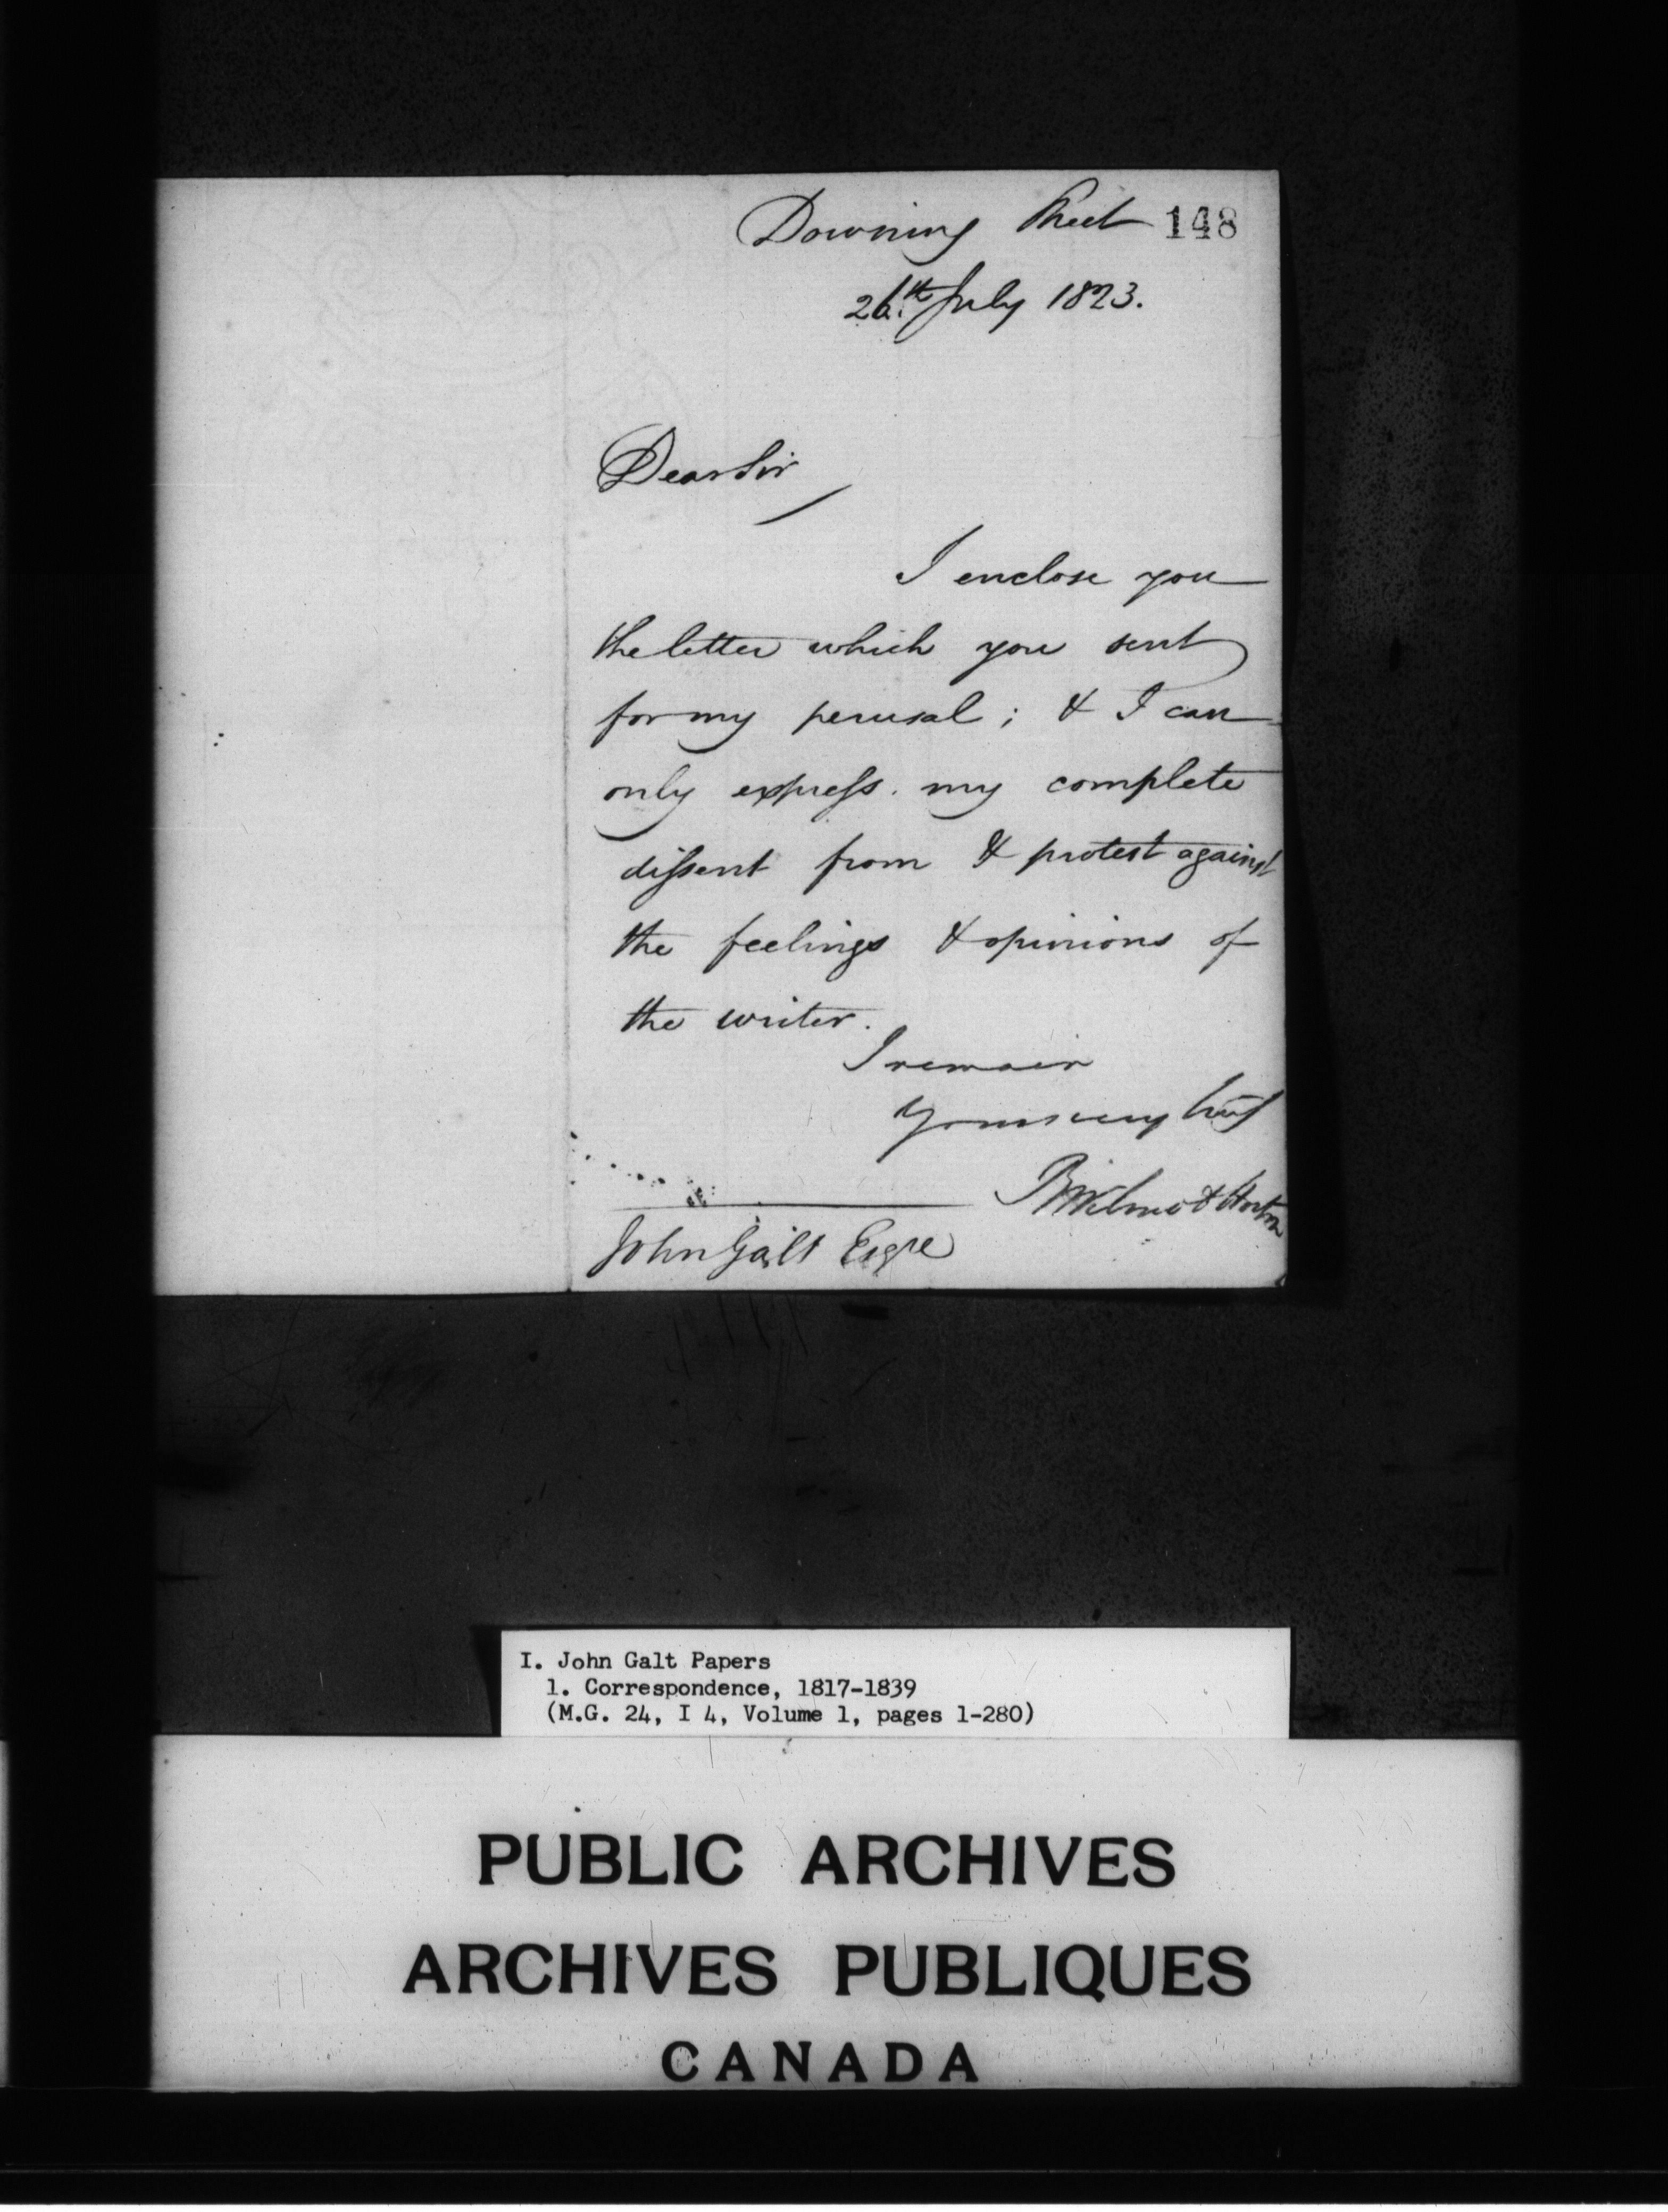 Downing Street 148
26th July 1823.
Dear Sir
I enclose you
the letter which you sent
for my perusal; & I can
only express my complete
dissent from & protest against
the feelings & opinions of
the writer.
I remain
Yours very truly
RWilmot Horton
John Galt Esqre
I. John Galt Papers
1. Correspondence, 1817-1839
(M.G. 24, I 4, Volume 1, pages 1-280)
PUBLIC ARCHIVES
ARCHIVES PUBLIQUES
CANADA